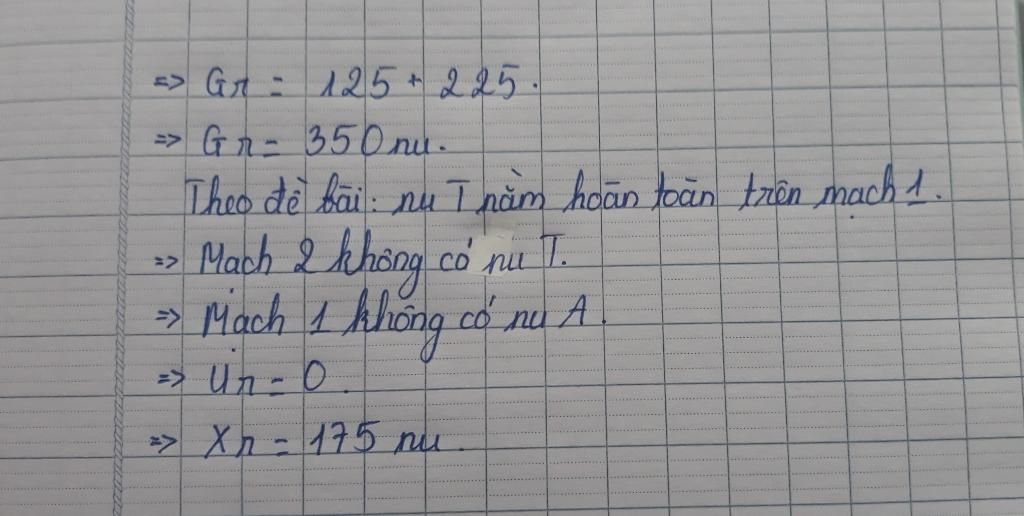 => Gn = 125 + 225.
=> Gn = 350 nu.
Theo đề bài: nu T nằm hoàn toàn trên mạch 1.
=> Mạch 2 không có nu T.
=> Mạch 1 không có nu A.
=> Un = 0.
=> Xn = 175 nu.